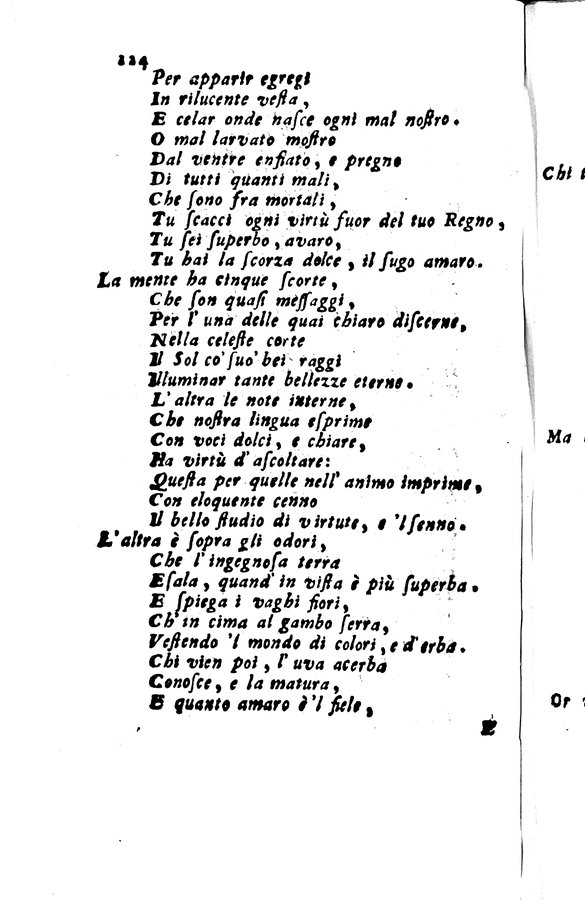 224
Per apparir egregi
In rilucente veſta,
E celar onde naſce ogni mal noſtro.
O mal larvato moſtro
Dal ventre enfiato, e pregno
Di tutti quanti mali,
Che ſono fra mortali,
Tu ſcacci ogni virtù fuor del tuo Regno,
Tu ſei ſuperbo, avaro,
Tu hai la ſcorza dolce, il ſugo amaro.
La mente ha cinque ſcorte,
Che ſon quaſi meſſaggi,
Per l'una delle quai chiaro diſcerne,
Nella celeſte corte
Il Sol co' ſuo' bei raggi
Illuminar tante bellezze eterne.
L'altra le note interne,
Che noſtra lingua eſprime
Con voci dolci, e chiare,
Ha virtù d'aſcoltare:
Queſta per quelle nell' animo imprime,
Con eloquente cenno
Il bello ſtudio di virtute, e 'l ſenno.
L'altra è ſopra gli odori,
Che l'ingegnoſa terra
Eſala, quand' in viſta è più ſuperba.
E ſpiega i vaghi fiori,
Ch'in cima al gambo ſerra,
Veſtendo 'l mondo di colori, e d'erba.
Chi vien poi, l'uva acerba
Conoſce, e la matura,
E quanto amaro è 'l fiele,
E
Chi
Ma
Or